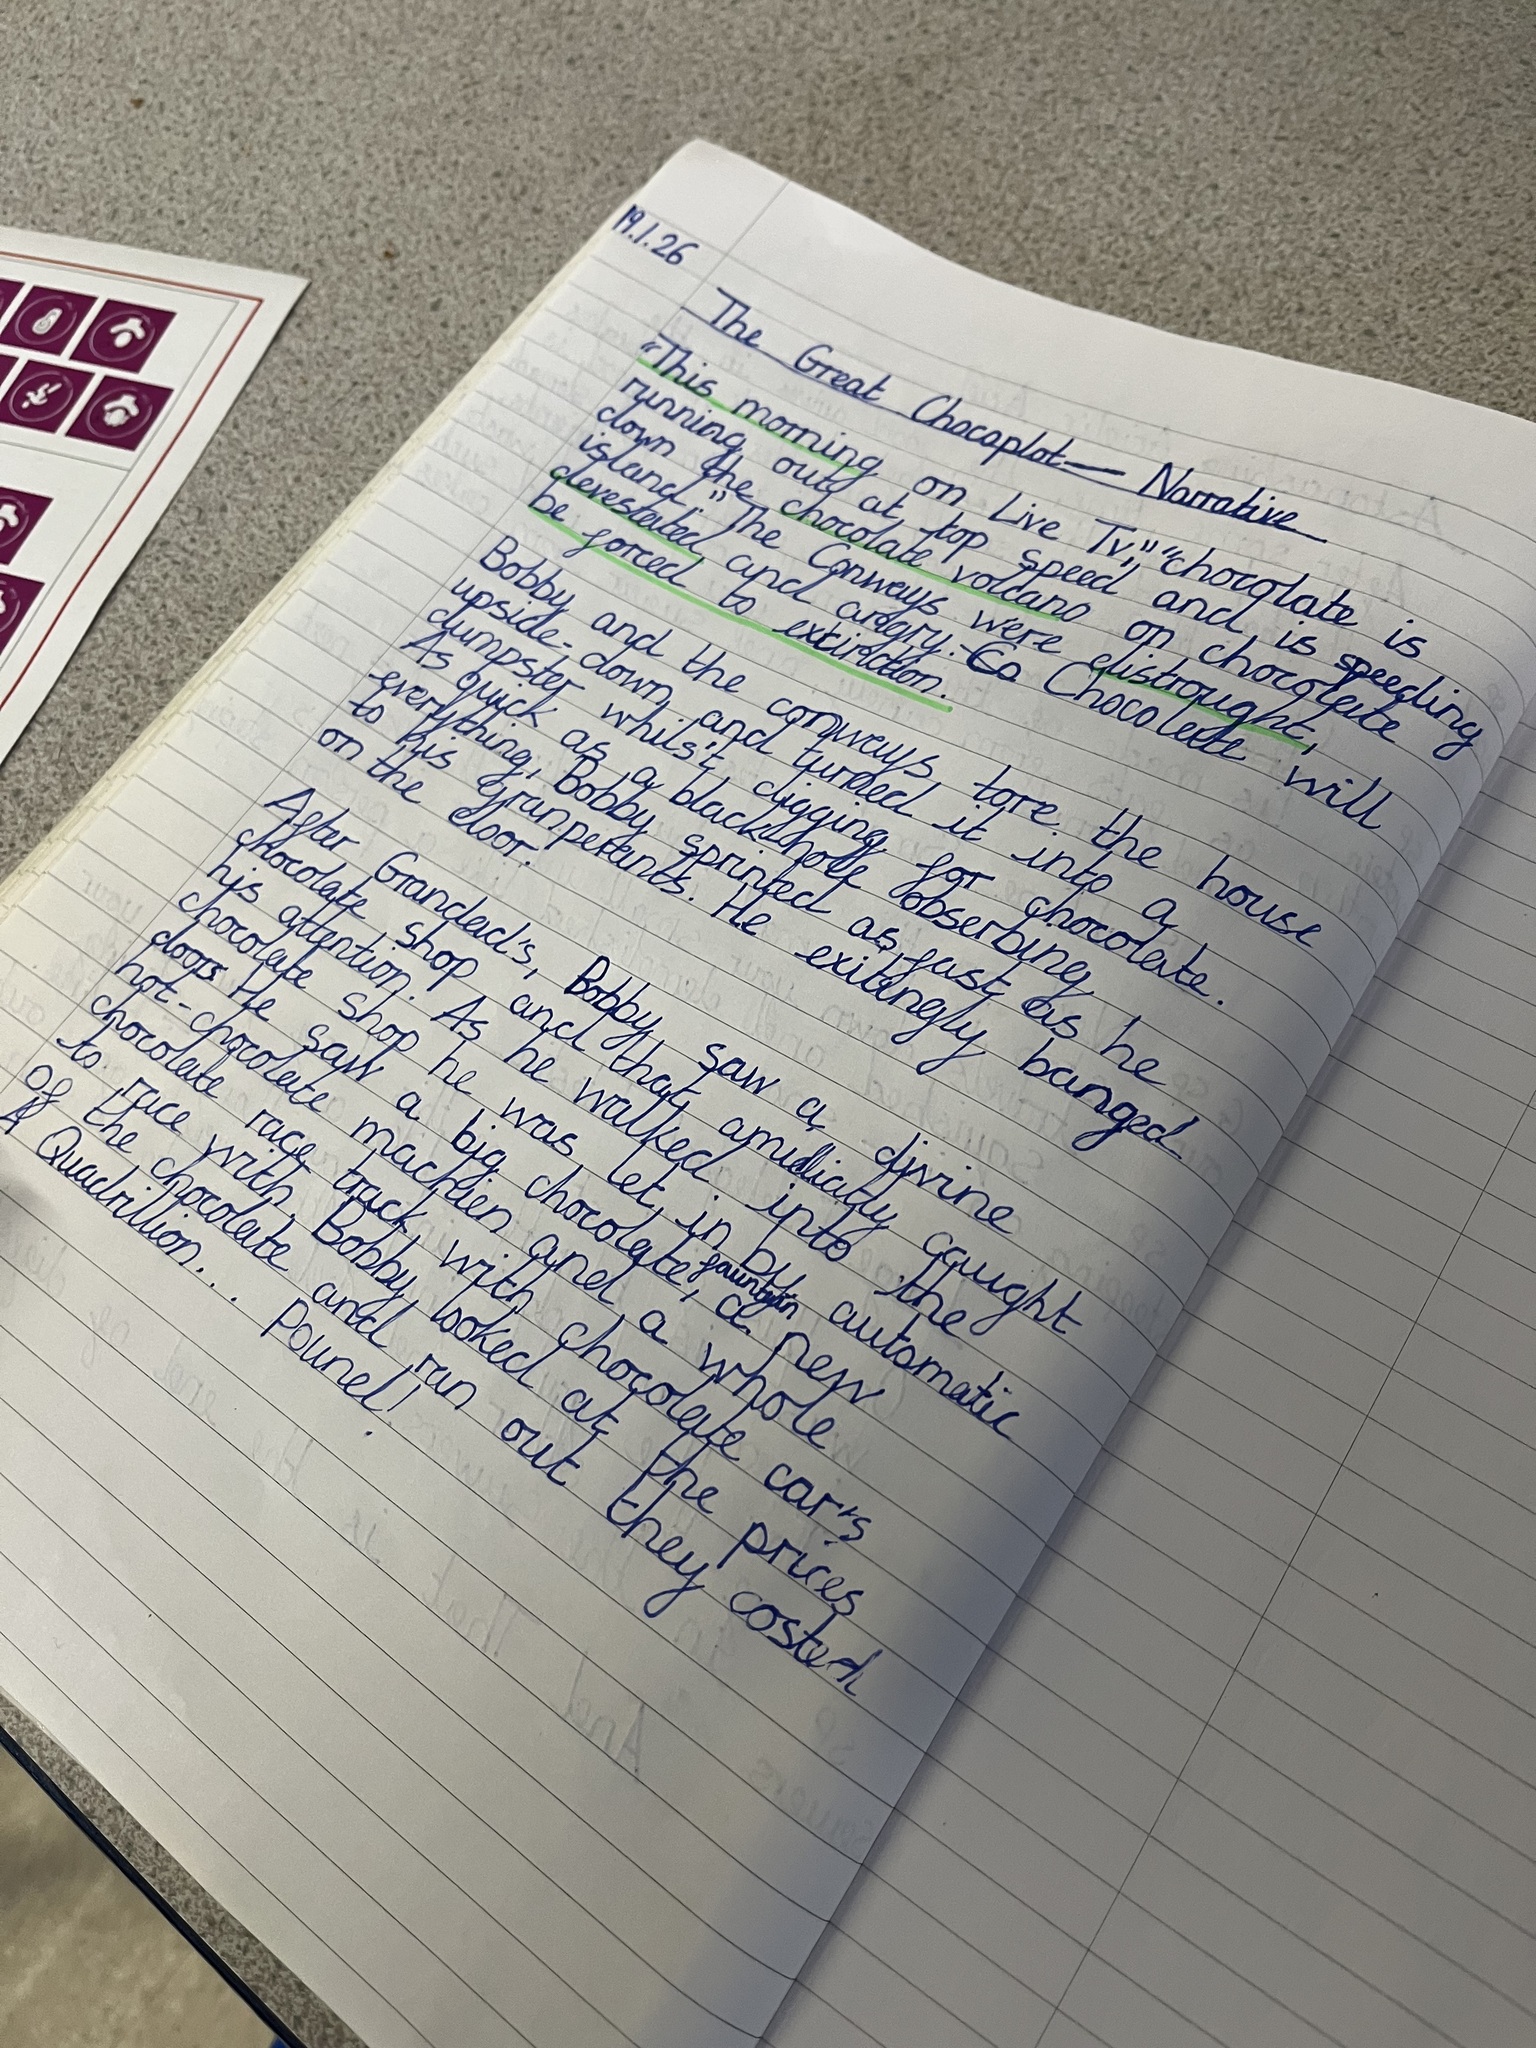 19.1.26
The Great Chocoplot — Narrative
"This morning on Live Tv," "chocolate is
running out at top speed and is speeding
down the chocolate volcano on chocolate
island." The Conways were distrought,
devestated and angry. Co Chocolate will
be forced to extinction.
Bobby and the conways tore the house
upside-down and turned it into a
dumpster whils't digging for chocolate.
As quick as a blackhole obserbing
everything, Bobby sprinted as fast as he
to his granperants. He exitingly banged
on the door.
After Grandad's, Bobby saw a divine
chocolate shop and that amidiatly caught
his attention. As he walked into the
chocolate shop he was let in by automatic
doors He saw a big chocolate fountain, a new
hot-chocolate machien and a whole
chocolate race track with chocolate car's
to race with, Bobby looked at the prices
of the chocolate and ran out they costed
A Quadrillion... pound!